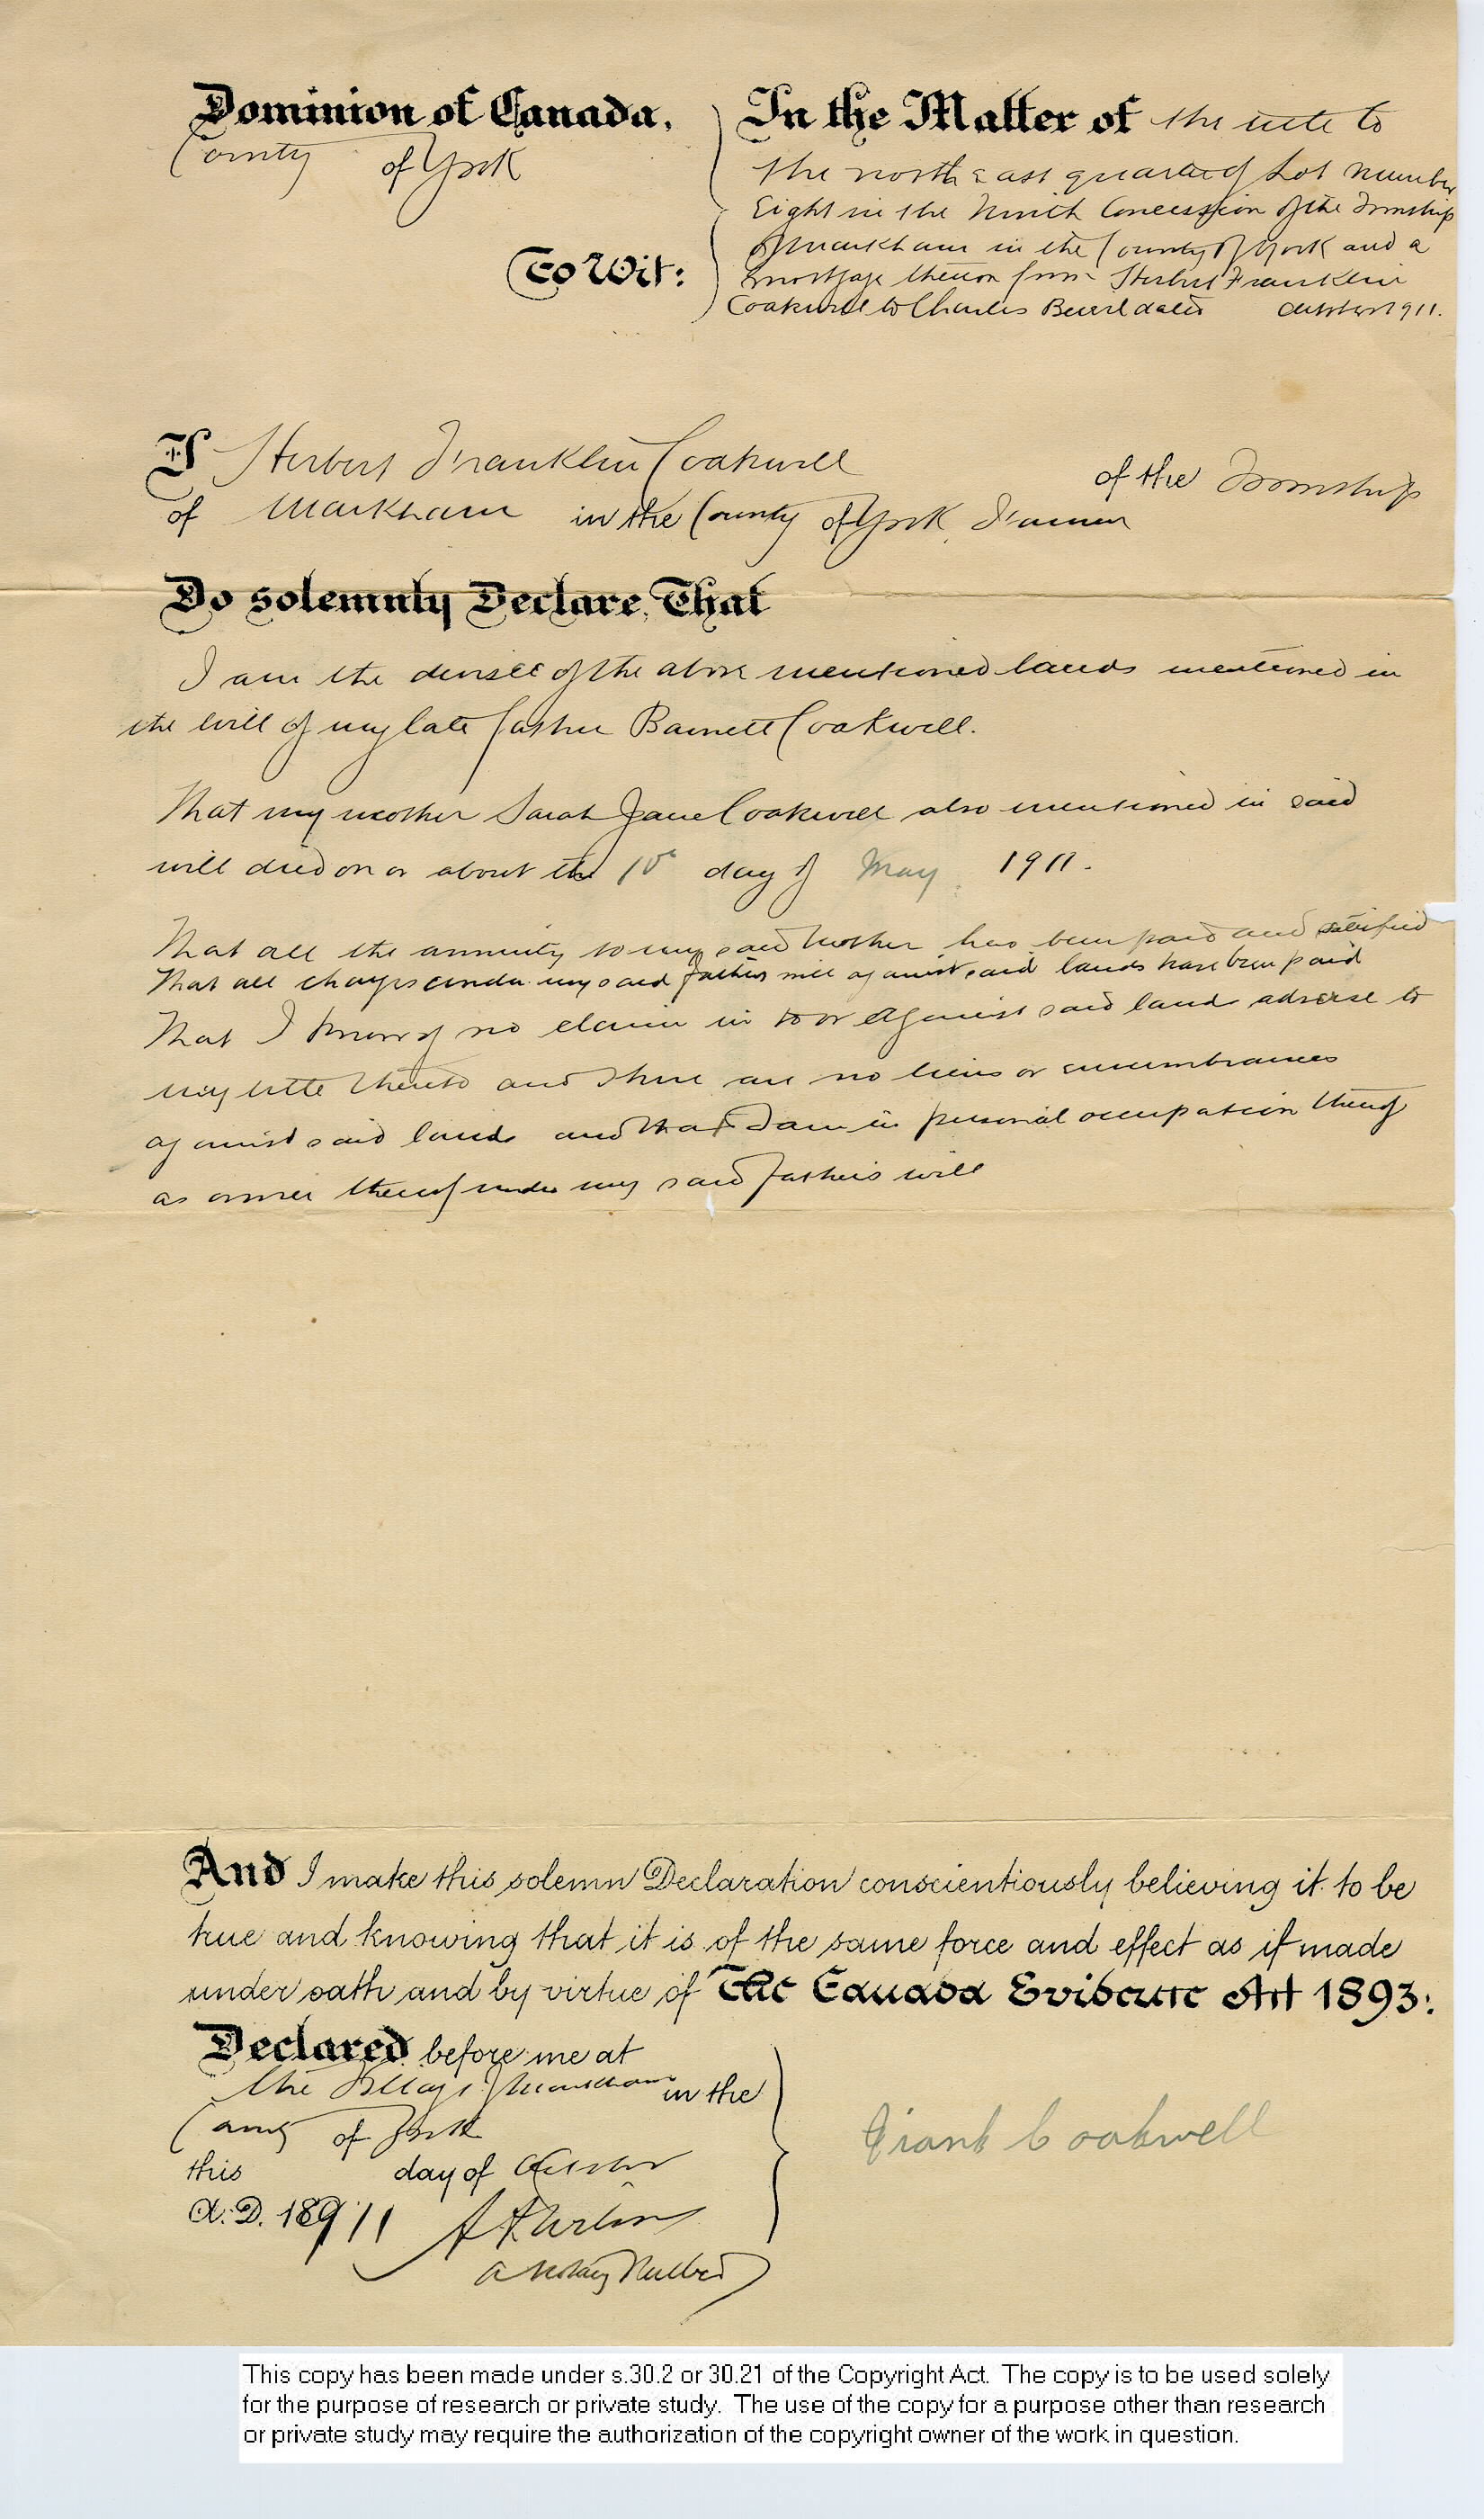 Dominion of Canada,
County of York
To Wit:
In the Matter of the title to
the north East quarter of Lot Number
Eight in the Ninth Concession of the Township
of Markham in the County of York and a
mortgage thereon from Herbert Franklin
Coakwell to Charles dated October 1911.
I Herbert Franklin Coakwell of the Township
of Markham in the County of York, Farmer
Do solemnly Declare, That
I am the devisee of the above mentioned lands mentioned in
the will of my late father Barnett Coakwell.
That my mother Sarah Jane Coakwell also mentioned in said
will died on or about the day of May 1911.
That all the annuity to my said Mother has been paid and satisfied
That all charges under my said father's will against said lands have been paid
That I know of no claim in to or against said lands adverse to
my title thereto and there are no liens or encumbrances
against said lands and that I am in personal occupation thereof
as owner thereof under my said father's will
And I make this solemn Declaration conscientiously believing it to be
true and knowing that it is of the same force and effect as if made
under oath and by virtue of The Canada Evidence Act 1893:
Declared before me at
the Village of Markham in the
County of York
this day of October
A.D. 1911
A Notary Public
Frank Coakwell
This copy has been made under s.30.2 or 30.21 of the Copyright Act. The copy is to be used solely
for the purpose of research or private study. The use of the copy for a purpose other than research
or private study may require the authorization of the copyright owner of the work in question.